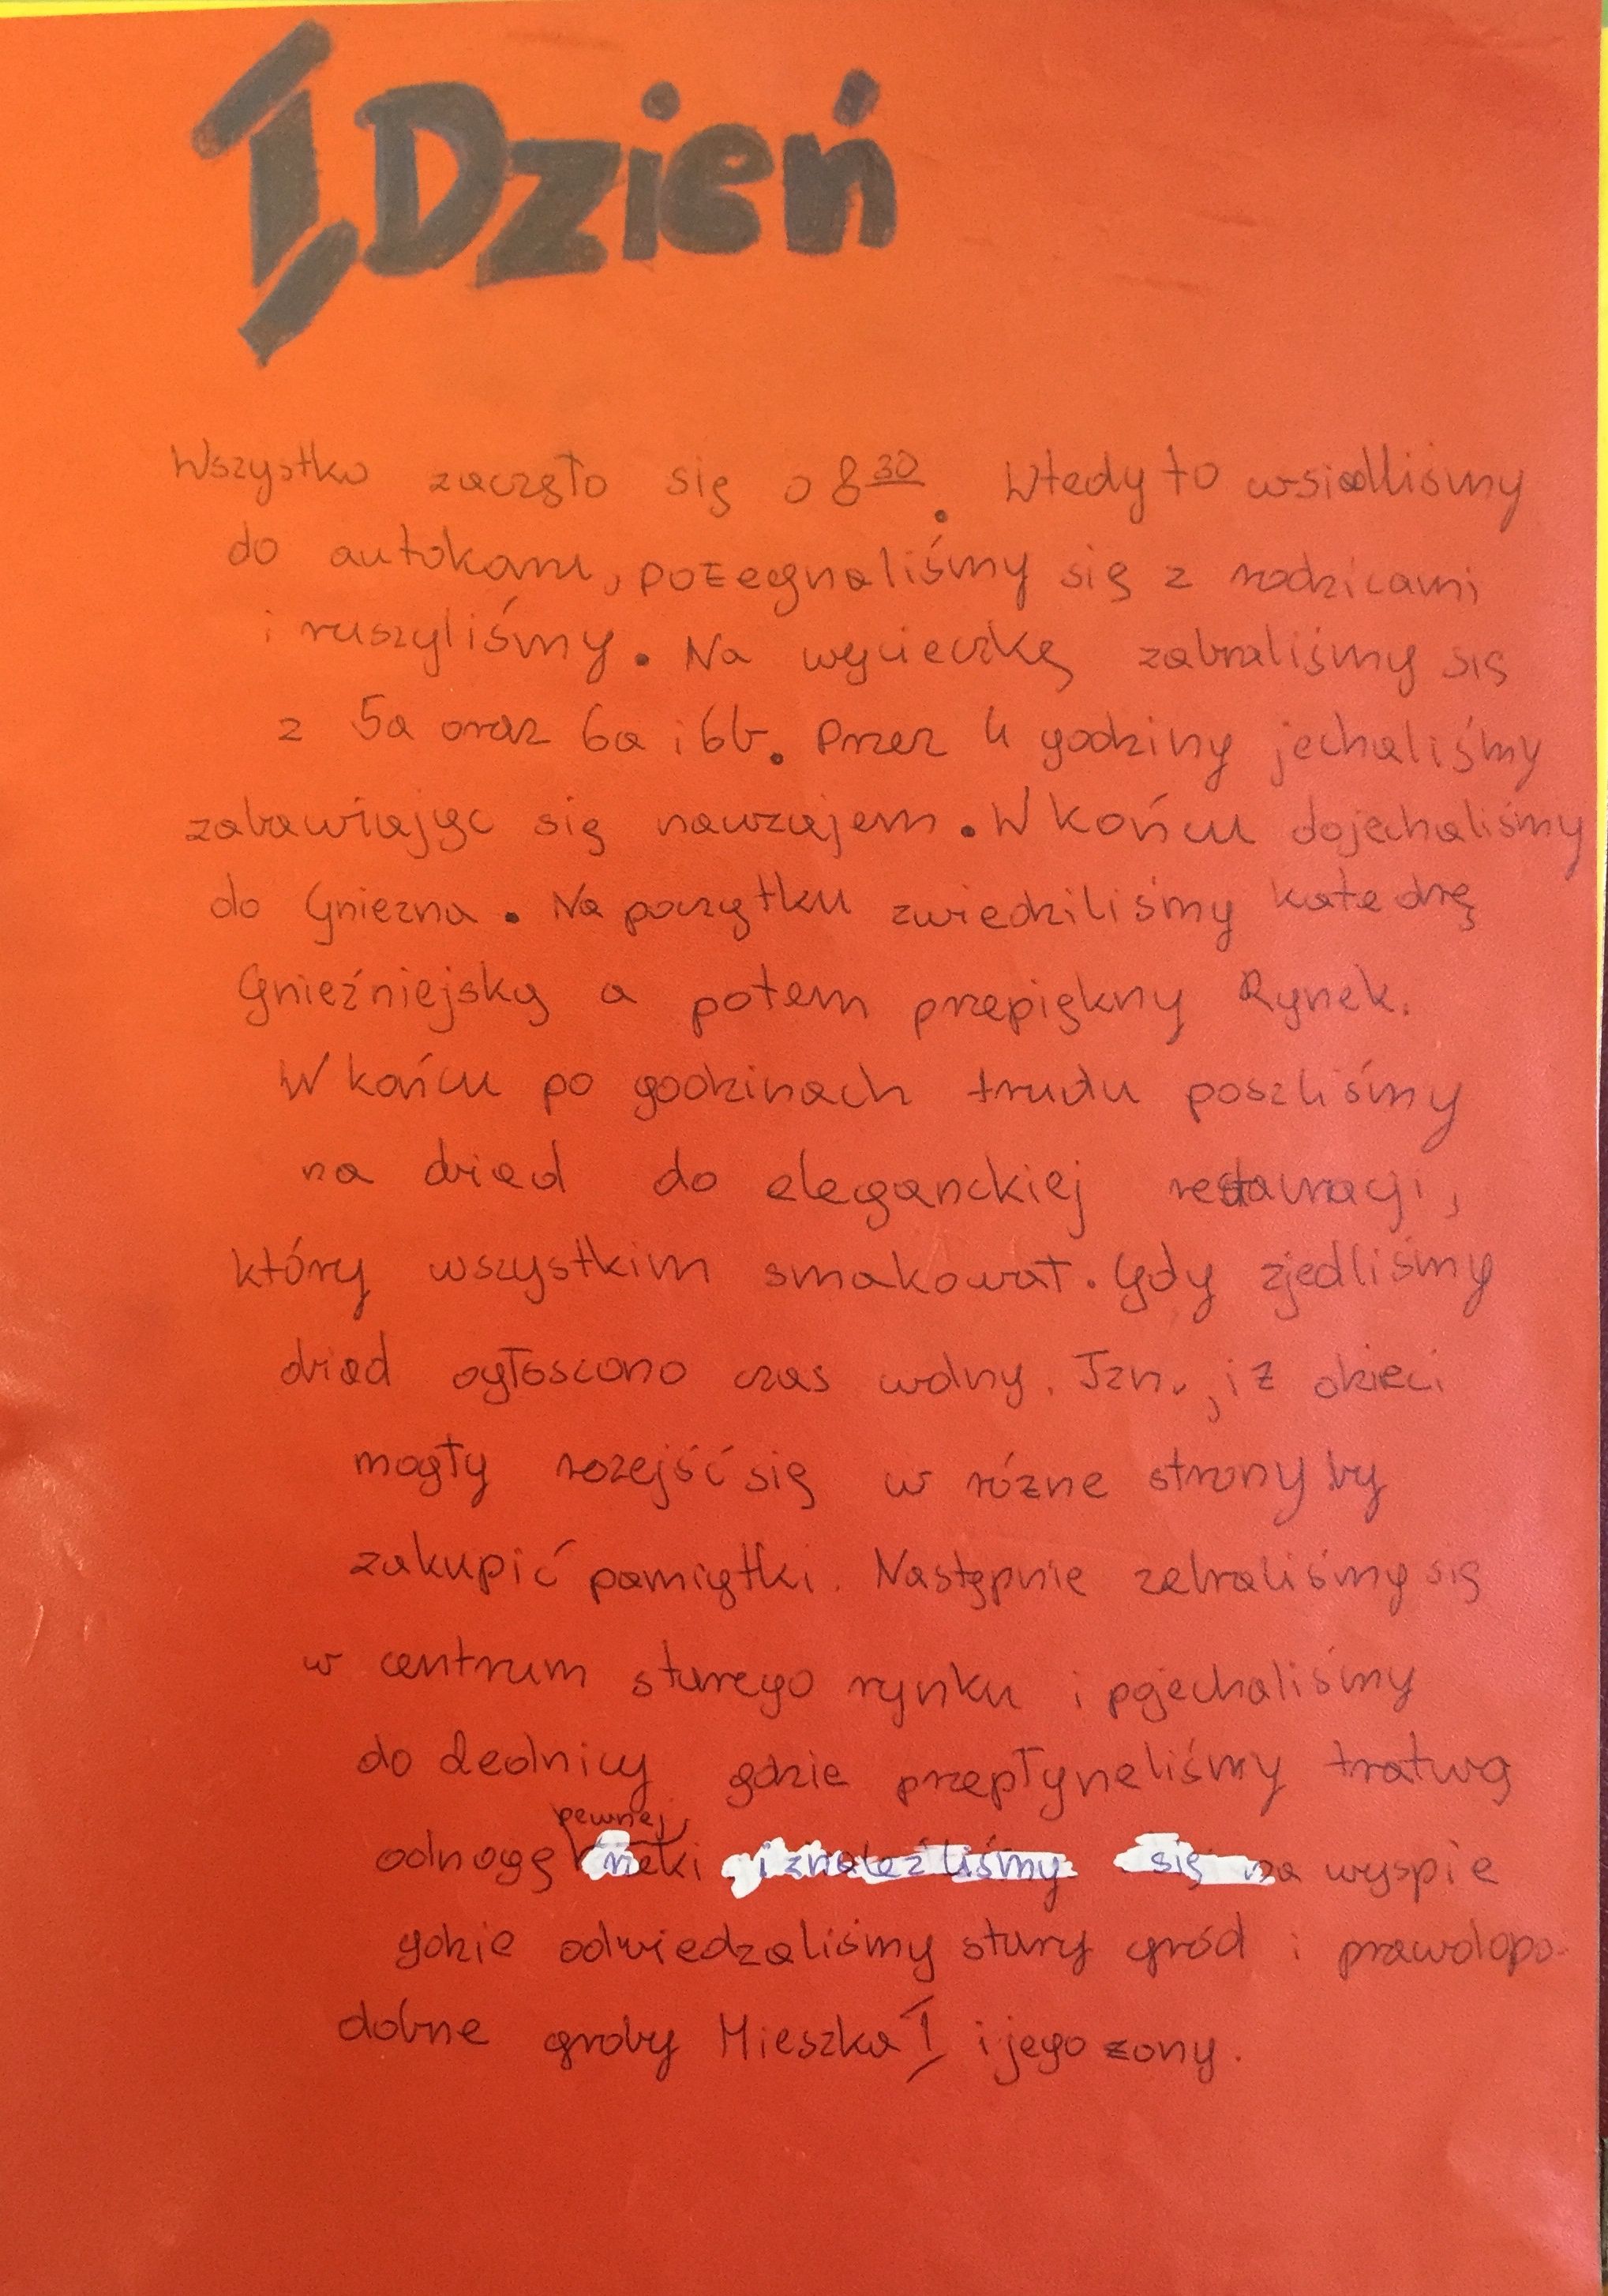 1, Dzień
Wszystko zaczęło się o 8 30. Wtedy to wsiedliśmy
do autokaru, pożegnaliśmy się z rodzicami
i ruszyliśmy. Na wycieczkę zabraliśmy się
z 5a oraz 6a i 6b. Przez 4 godziny jechaliśmy
zabawiając się nawzajem. W końcu dojechaliśmy
do Gniezna. Na początku zwiedziliśmy katedrę
Gnieźniejską a potem przepiękny Rynek.
W końcu po godzinach trudu poszliśmy
na obiad do eleganckiej restauracji,
który wszystkim smakował. Gdy zjedliśmy
obiad ogłoscono czas wolny. Tzn., iż dzieci
mogły rozejść się w różne strony by
zakupić pamiątki. Następnie zebraliśmy się
w centrum starego rynku i pojechaliśmy
do Lednicy gdzie przepłyneliśmy tratwą
odnogę pewnej rzeki i znaleźliśmy się na wyspie
gdzie odwiedzaliśmy stary gród i prawdopo-
dobne groby Mieszka I i jego żony.